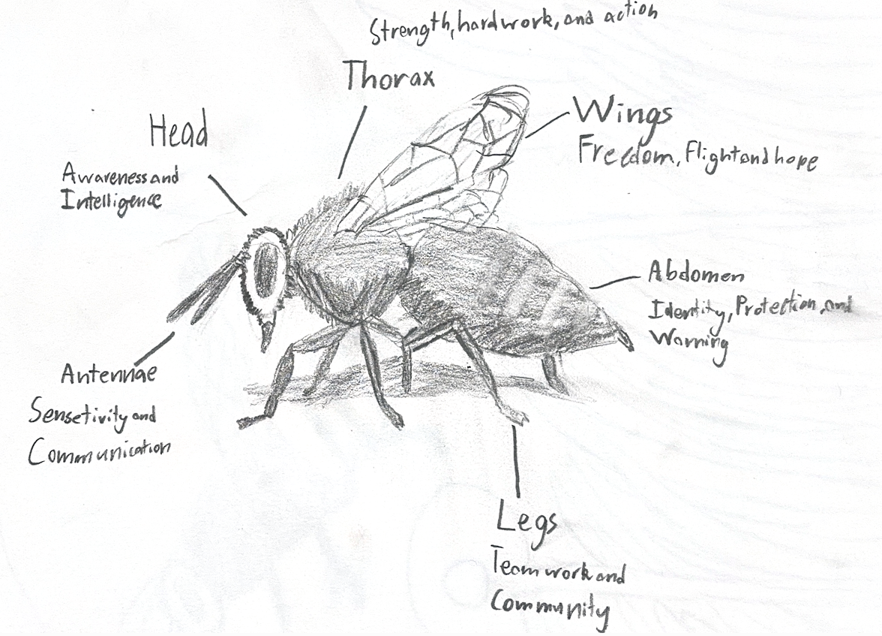 Strength, hard work, and action
Thorax
Wings
Freedom, Flight and hope
Head
Awareness and
Intelligence
Abdomen
Identity, Protection, and
Warning
Antennae
Sensetivity and
Communication
Legs
Team work and
Community